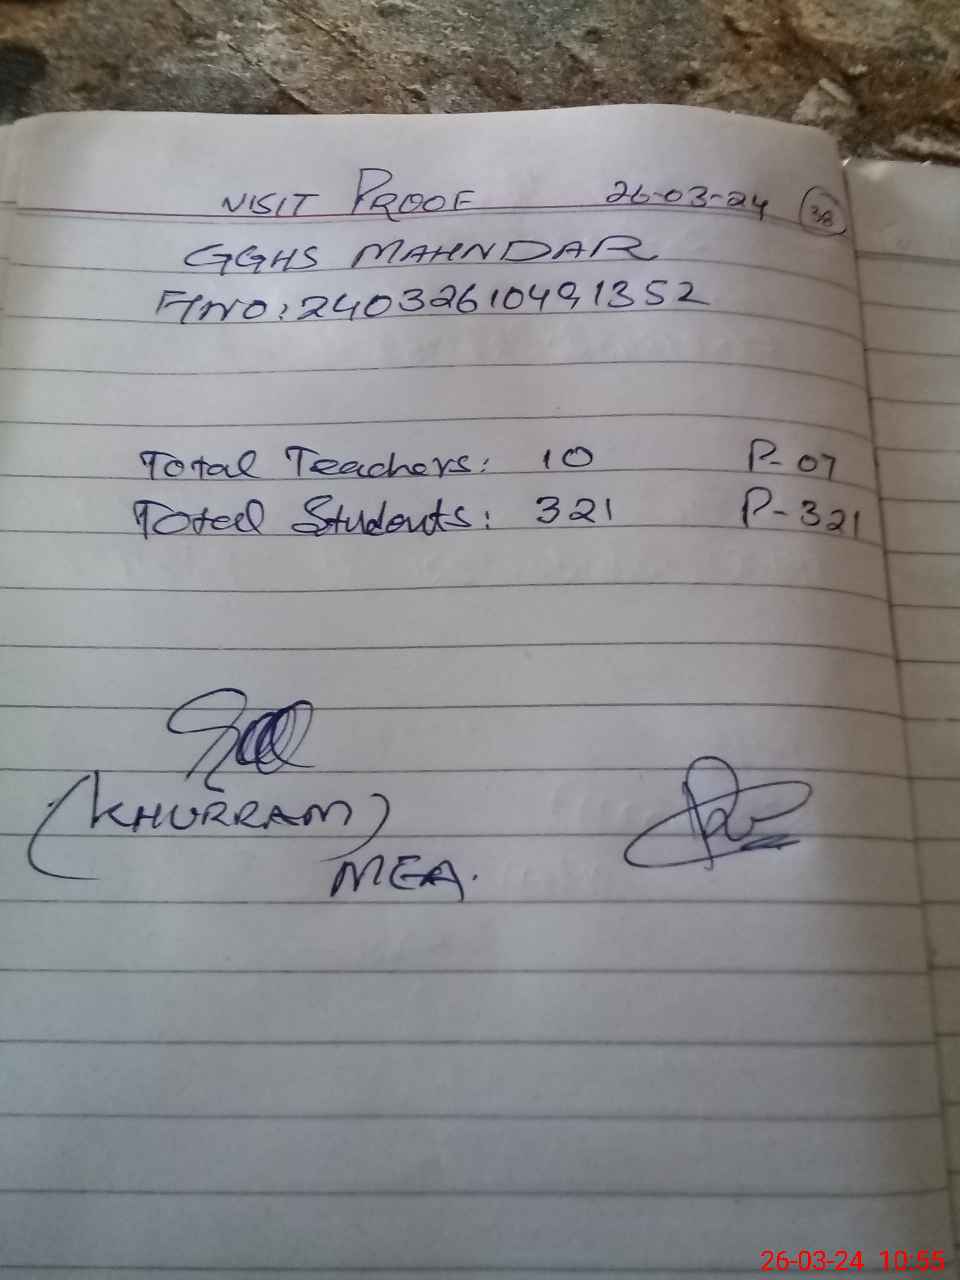 VISIT PROOF 26-03-24 38
GGHS MAHNDAR
F/NO: 24032610491352
Total Teachers: 10 P- 07
Total Students: 321 P- 321
(KHURRAM)
MEA.
26-03-24 10:55